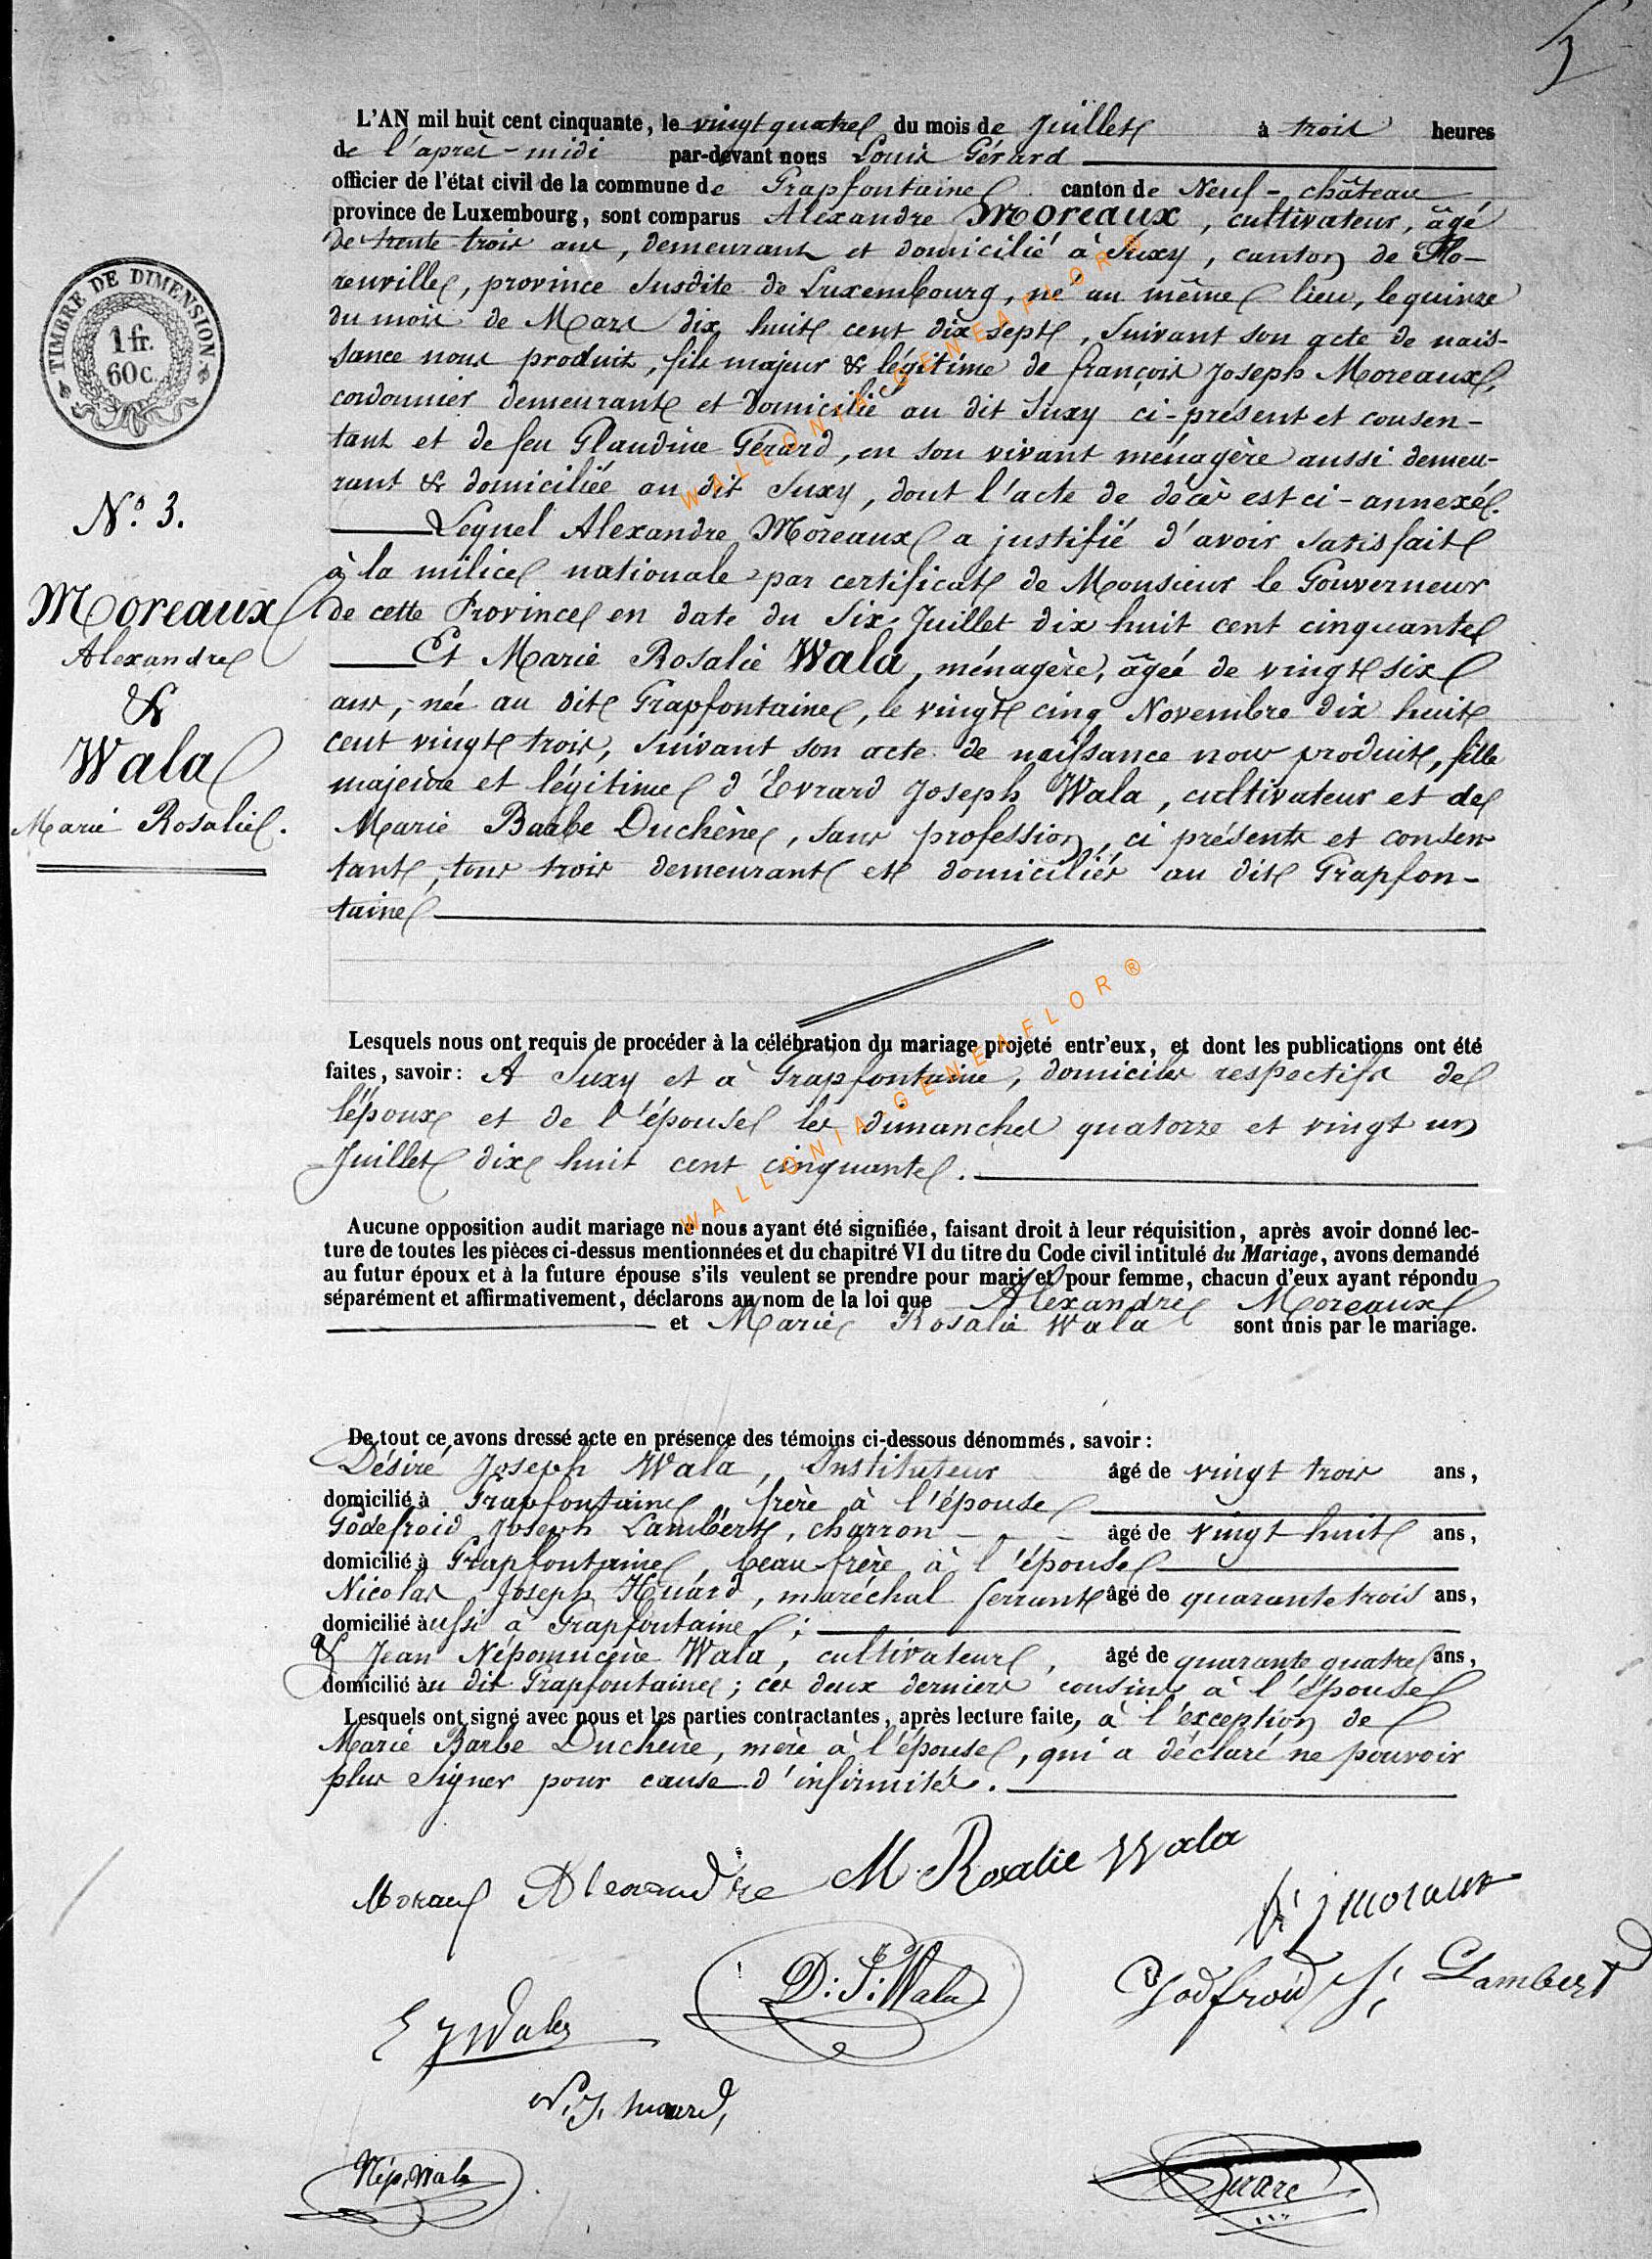 L'AN mil huit cent cinquante, le vingt quatre du mois de Juillet à trois heures
de l'après-midi par-devant nous Louis Gérard
officier de l'état civil de la commune de Grapfontaine canton de Neuf-château
province de Luxembourg, sont comparus Alexandre Moreaux, cultivateur, âgé
de trente trois ans, demeurant et domicilié à Suxy, canton de Flo-
renville, province susdite de Luxembourg, né au même lieu, le quinze
du mois de Mars dix huit cent dix sept, suivant son acte de nais-
sance nous produit, fils majeur & légitime de françois Joseph Moreaux,
cordonnier demeurant et domicilié au dit Suxy ci-présent et consen-
tant et de feu Glaudine Gérard, en son vivant ménagère aussi demeu-
rant & domiciliée au dit Suxy, dont l'acte de décès est ci-annexé.
Lequel Alexandre Moreaux a justifié d'avoir satisfait
à la milice nationale par certificat de Monsieur le Gouverneur
de cette Province en date du six Juillet dix huit cent cinquante
Et Marie Rosalie Wala, ménagère, âgée de vingt six
ans, née au dit Grapfontaine, le vingt cinq Novembre dix huit
cent vingt trois, suivant son acte de naissance nous produit, fille
majeure et légitime d'Evrard Joseph Wala, cultivateur et de
Marie Barbe Duchène, sans profession, ci présents et consen
tant, tous trois demeurant et domiciliés au dit Grapfon-
taine
TIMBRE DE DIMENSION
1 fr.
60 c.
N.º 3.
Moreaux
Alexandre
&
Wala
Marie Rosalie.
Lesquels nous ont requis de procéder à la célébration du mariage projeté entr'eux, et dont les publications ont été
faites, savoir: A Suxy et à Grapfontaine, domiciles respectifs de
l'époux et de l'épouse les dimanches quatorze et vingt un
Juillet dix huit cent cinquante.
Aucune opposition audit mariage ne nous ayant été signifiée, faisant droit à leur réquisition, après avoir donné lec-
ture de toutes les pièces ci-dessus mentionnées et du chapitré VI du titre du Code civil intitulé du Mariage, avons demandé
au futur époux et à la future épouse s'ils veulent se prendre pour mari et pour femme, chacun d'eux ayant répondu
séparément et affirmativement, déclarons au nom de la loi que Alexandre Moreaux
et Marie Rosalie Wala sont unis par le mariage.
De tout ce avons dressé acte en présence des témoins ci-dessous dénommés, savoir:
Désiré Joseph Wala, Instituteur âgé de vingt trois ans,
domicilié à Grapfontaine, frère à l'épouse
Godefroid Joseph Lambert, charron âgé de vingt huit ans,
domicilié à Grapfontaine, beau-frère à l'épouse
Nicolas Joseph Huard, maréchal ferrant âgé de quarante trois ans,
domicilié aussi à Grapfontaine;
& Jean Népomucène Wala, cultivateur, âgé de quarante quatre ans,
domicilié au dit Grapfontaine; ces deux derniers cousins à l'épouse
Lesquels ont signé avec nous et les parties contractantes, après lecture faite, à l'exception de
Marie Barbe Duchène, mère à l'épouse, qui a déclaré ne pouvoir
plus signer pour cause d'infirmités.
Moraux Alexandre M. Rosalie Wala
f j moraux
E J Wala D: J: Wala Godfroid J. Lambert
N. J. huard,
Nép. Wala
WALLONIA-GENEAFLOR®
WALLONIA-GENEAFLOR®